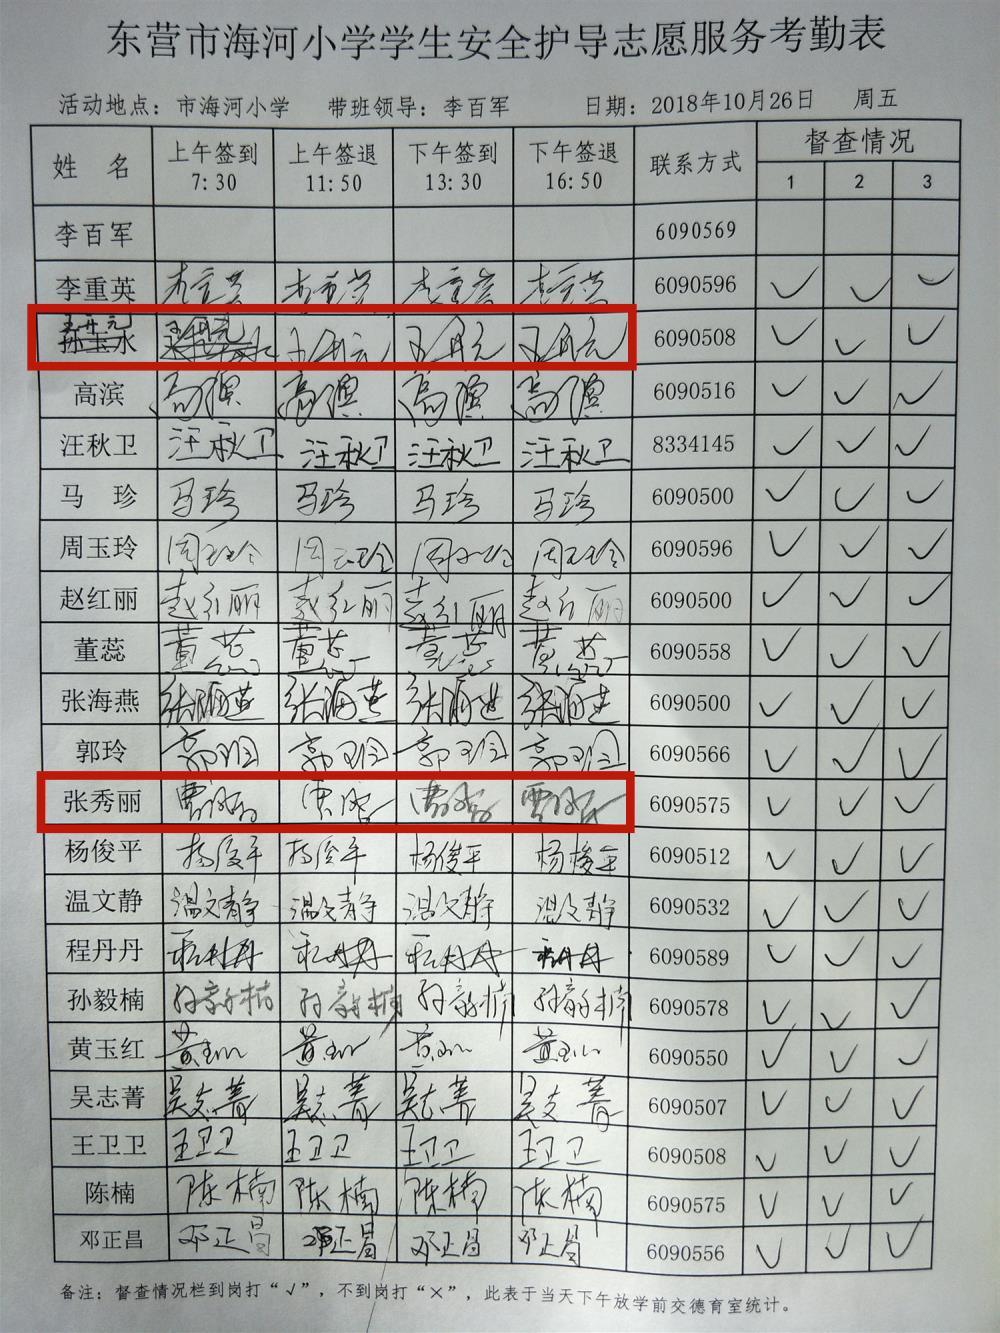 东营市海河小学学生安全护导志愿服务考勤表
活动地点：市海河小学 带班领导：李百军 日期：2018年10月26日 周五
姓 名 上午签到 7:30 上午签退 11:50 下午签到 13:30 下午签退 16:50 联系方式 督查情况 1 2 3
李百军 6090569
李重英 李重英 李重英 李重英 李重英 6090596 ✓ ✓ ✓
王开元
孙玉水 王开元 王开元 王开元 6090508 ✓ ✓ ✓
高滨 高滨 高滨 高滨 高滨 6090516 ✓ ✓ ✓
汪秋卫 汪秋卫 汪秋卫 汪秋卫 汪秋卫 8334145 ✓ ✓ ✓
马 珍 马珍 马珍 马珍 马珍 6090500 ✓ ✓ ✓
周玉玲 周玉玲 周玉玲 周玉玲 周玉玲 6090596 ✓ ✓ ✓
赵红丽 赵红丽 赵红丽 赵红丽 赵红丽 6090500 ✓ ✓ ✓
董蕊 董蕊 董蕊 董蕊 董蕊 6090558 ✓ ✓ ✓
张海燕 张海燕 张海燕 张海燕 张海燕 6090500 ✓ ✓ ✓
郭玲 郭玲 郭玲 郭玲 郭玲 6090566 ✓ ✓ ✓
张秀丽 6090575 ✓ ✓ ✓
杨俊平 杨俊平 杨俊平 杨俊平 杨俊平 6090512 ✓ ✓ ✓
温文静 温文静 温文静 温文静 温文静 6090532 ✓ ✓ ✓
程丹丹 程丹丹 程丹丹 程丹丹 程丹丹 6090589 ✓ ✓ ✓
孙毅楠 孙毅楠 孙毅楠 孙毅楠 孙毅楠 6090578 ✓ ✓ ✓
黄玉红 黄玉红 黄玉红 黄玉红 黄玉红 6090550 ✓ ✓ ✓
吴志菁 吴志菁 吴志菁 吴志菁 吴志菁 6090507 ✓ ✓ ✓
王卫卫 王卫卫 王卫卫 王卫卫 王卫卫 6090508 ✓ ✓ ✓
陈楠 陈楠 陈楠 陈楠 陈楠 6090575 ✓ ✓ ✓
邓正昌 邓正昌 邓正昌 邓正昌 邓正昌 6090556 ✓ ✓ ✓
备注：督查情况栏到岗打“√”，不到岗打“×”，此表于当天下午放学前交德育室统计。